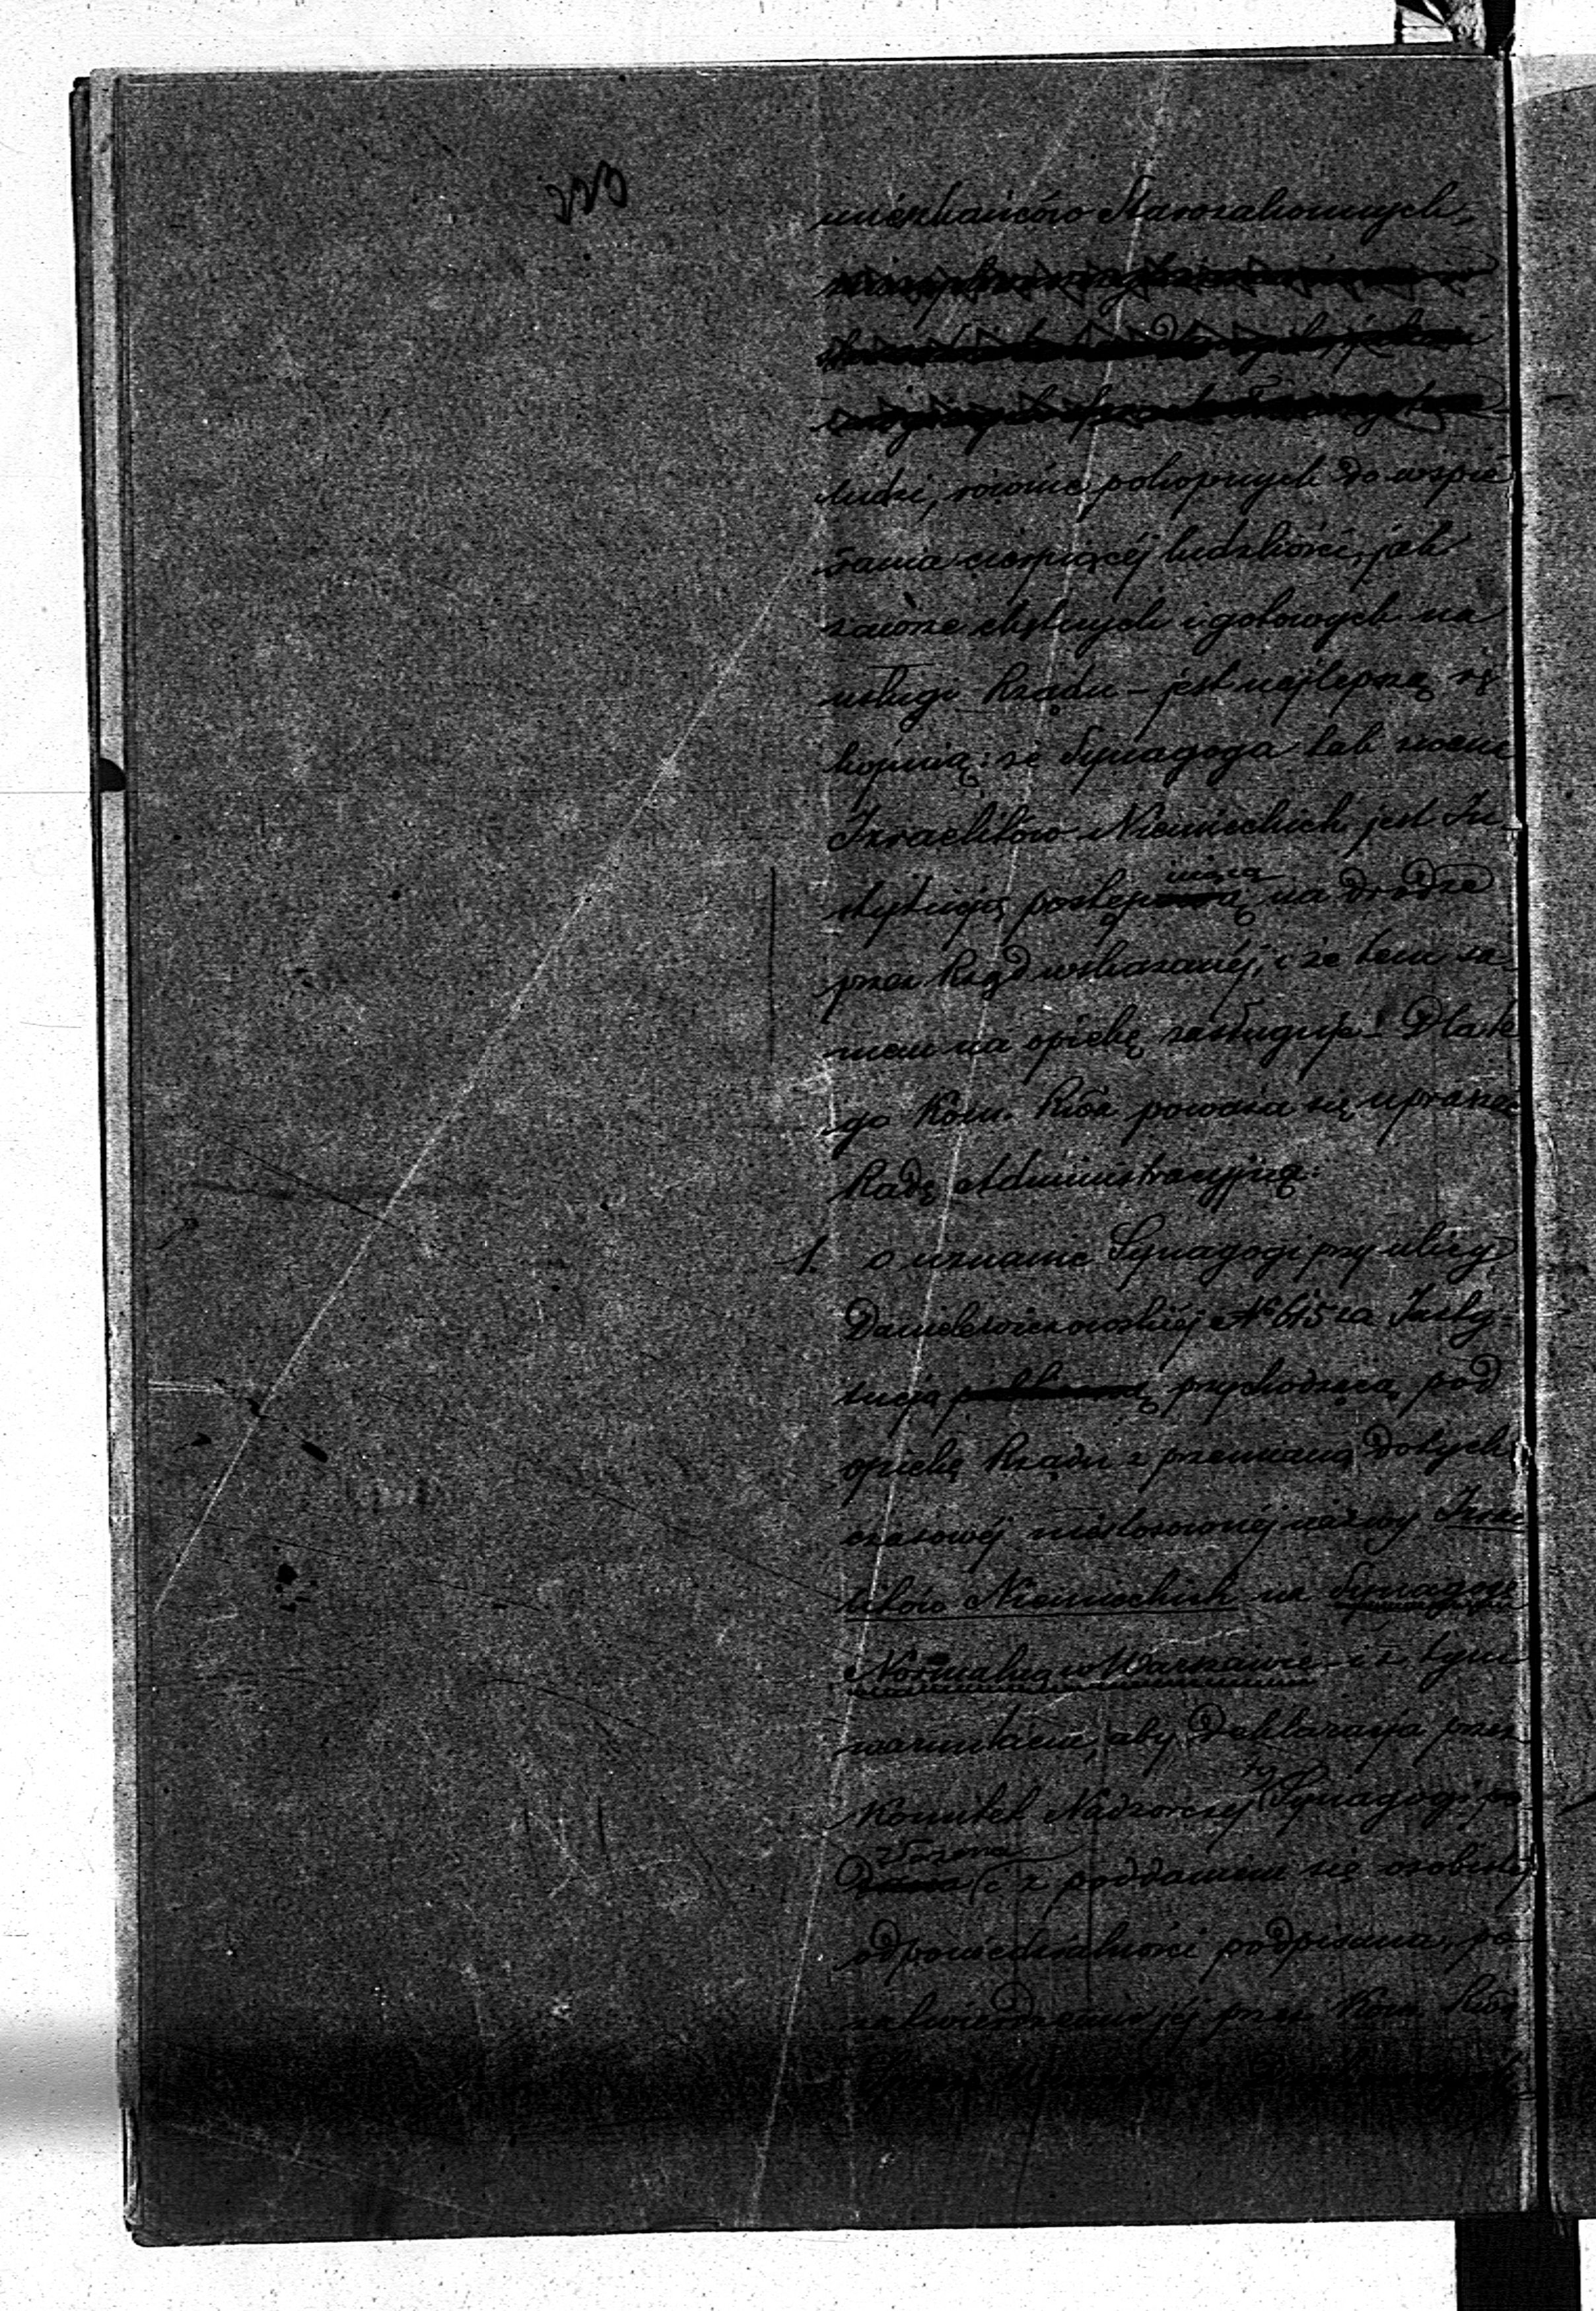 223
mieszkańców Starozakonnych,
ludzi, równie pohopnych do wspie
rania cierpiącéj ludzkości, jak
zawsze chętnych i gotowych na
usługi Rządu – jest najlepszą rę
kojmią: że Synagoga tak zwana
Izraelitów Niemieckich, jest In-
stytucją postępującą na drodze
przez Rząd wskazanéj, i że tem sa-
mem na opiekę zasługuje. Dlate
go Kom. Rząd poważa się upraszać
Radę Administracyjną:
1. o uznanie Synagogi przy ulicy
Danielewiczowskiéj No 615 za Insty-
tucją przychodzącą pod
opiekę Rządu z przemianą dotych
czasowéj niestosownéj nazwy Izrae
litów Niemieckich na Synagogę
Normalną w Warszawie – i z tym
warunkiem, aby Deklaracja przez
Komitet Nadzorczy téj Synagogi
złożona i z poddaniem się osobistéj
odpowiedzialności podpisana, po
zatwierdzeniu jéj przez Kom. Rząd